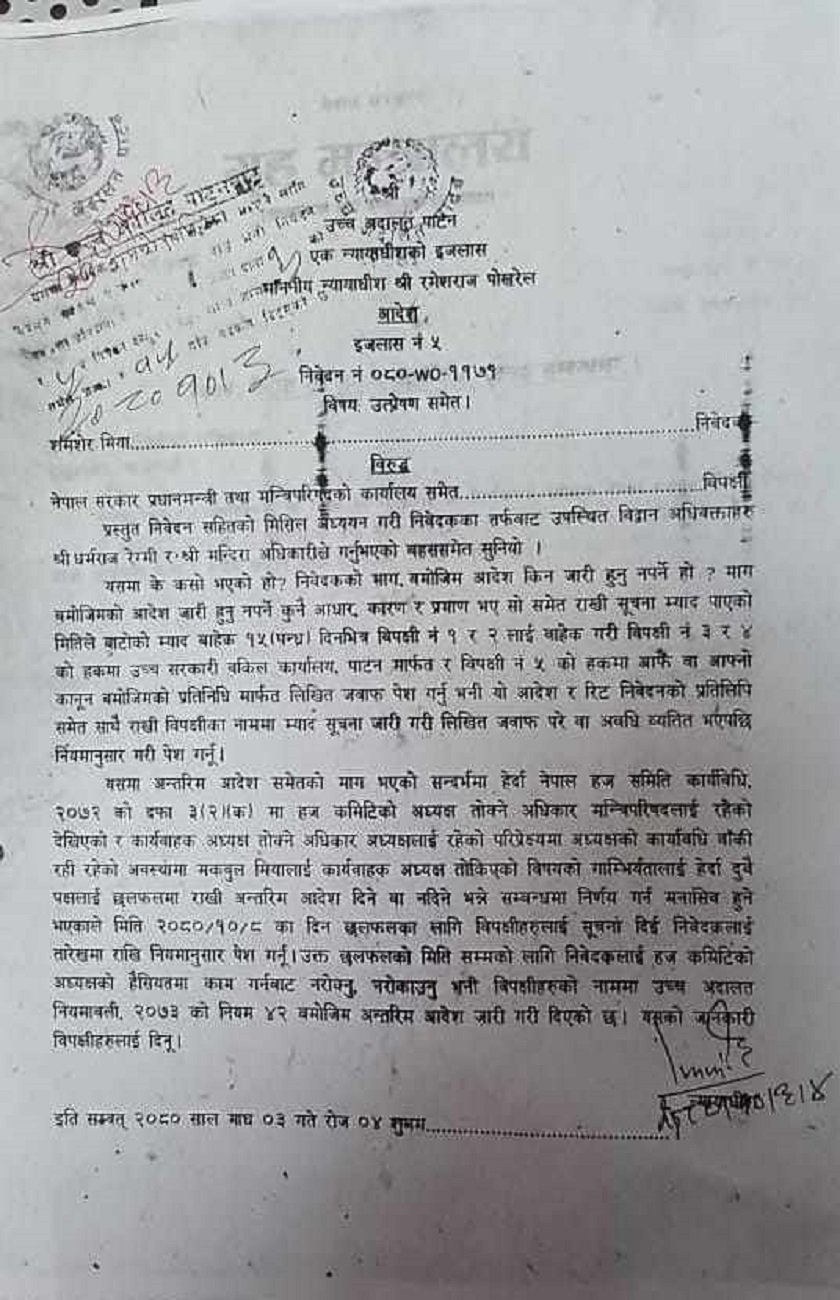 श्री
उच्च अदालत पाटन
एक न्यायाधीशको इजलास
माननीय न्यायाधीश श्री रमेशराज पोखरेल
आदेश
इजलास नं ५
निवेदन नं ०८०-WO-११७१
विषय: उत्प्रेषण समेत।
शमशेर मिया.....निवेदक
विरुद्ध
नेपाल सरकार प्रधानमन्त्री तथा मन्त्रिपरिषदको कार्यालय समेत.....विपक्षी
प्रस्तुत निवेदन सहितको मिसिल अध्ययन गरी निवेदकका तर्फबाट उपस्थित विद्वान अधिवक्ताहरु
श्री धर्मराज रेग्मी र श्री मन्दिरा अधिकारीले गर्नुभएको बहससमेत सुनियो ।
यसमा के कसो भएको हो? निवेदकको माग बमोजिम आदेश किन जारी हुनु नपर्ने हो ? माग
बमोजिमको आदेश जारी हुनु नपर्ने कुनै आधार, कारण र प्रमाण भए सो समेत राखी सूचना म्याद पाएको
मितिले बाटोको म्याद बाहेक १५(पन्ध्र) दिनभित्र विपक्षी नं १ र २ लाई बाहेक गरी विपक्षी नं ३ र ४
को हकमा उच्च सरकारी वकिल कार्यालय, पाटन मार्फत र विपक्षी नं ५ को हकमा आफै वा आफ्नो
कानून बमोजिमको प्रतिनिधि मार्फत लिखित जवाफ पेश गर्नु भनी यो आदेश र रिट निवेदनको प्रतिलिपि
समेत साथै राखी विपक्षीका नाममा म्याद सूचना जारी गरी लिखित जवाफ परे वा अवधि व्यतित भएपछि
नियमानुसार गरी पेश गर्नू।
यसमा अन्तरिम आदेश समेतको माग भएको सन्दर्भमा हेर्दा नेपाल हज समिति कार्यविधि,
२०७२ को दफा ३(२)(क) मा हज कमिटिको अध्यक्ष तोक्ने अधिकार मन्त्रिपरिषदलाई रहेको
देखिएको र कार्यवाहक अध्यक्ष तोक्ने अधिकार अध्यक्षलाई रहेको परिप्रेक्ष्यमा अध्यक्षको कार्यावधि बाँकी
रही रहेको अवस्थामा मकबुल मियालाई कार्यवाहक अध्यक्ष तोकिएको विषयको गाम्भिर्यतालाई हेर्दा दुवै
पक्षलाई छलफलमा राखी अन्तरिम आदेश दिने वा नदिने भन्ने सम्बन्धमा निर्णय गर्न मनासिव हुने
भएकाले मिति २०८०/१०/८ का दिन छलफलका लागि विपक्षीहरुलाई सूचना दिई निवेदकलाई
तारेखमा राखि नियमानुसार पेश गर्नू। उक्त छलफलको मिति सम्मको लागि निवेदकलाई हज कमिटिको
अध्यक्षको हैसियतमा काम गर्नबाट नरोक्नु, नरोकाउनु भनी विपक्षीहरुको नाममा उच्च अदालत
नियमावली, २०७३ को नियम ४२ बमोजिम अन्तरिम आदेश जारी गरी दिएको छ। यसको जानकारी
विपक्षीहरुलाई दिनू।
न्यायाधीश
इति सम्वत् २०८० साल माघ ०३ गते रोज ०४ शुभम्.....